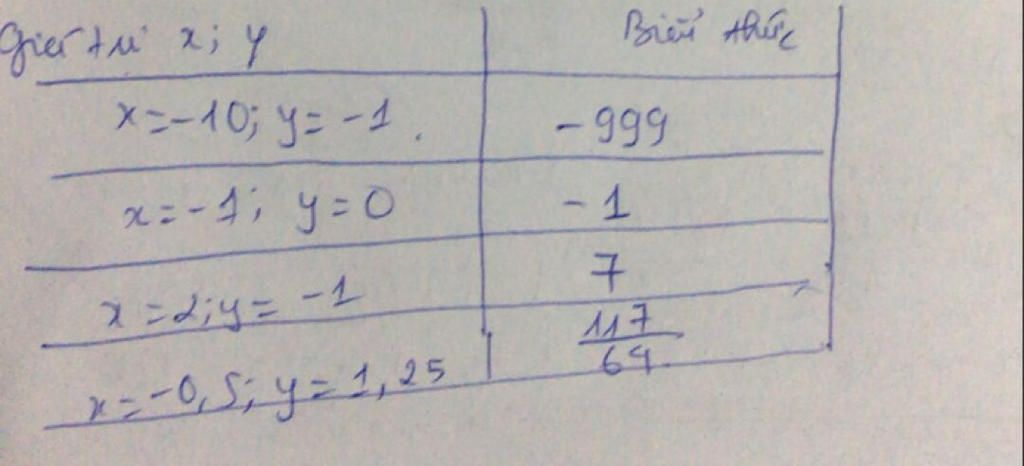 Giá trị x; y Biểu thức
x=-10; y= -1. -999
x=-1; y=0 -1
x=2; y= -1 7
x=-0,5; y=1,25 117/64